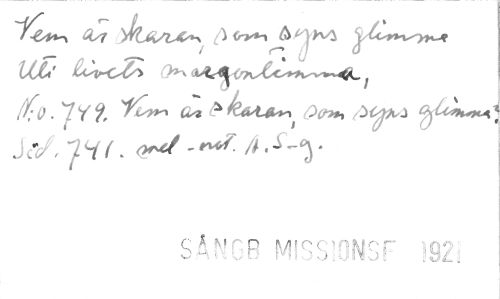 Vem är skaran, som syns glimma
Uti livets morgontimma,
N:o. 749. Vem är skaran, som syns glimma?
Sid. 741. mel -not. A. S-g.
SÅNGB MISSIONSF 1921